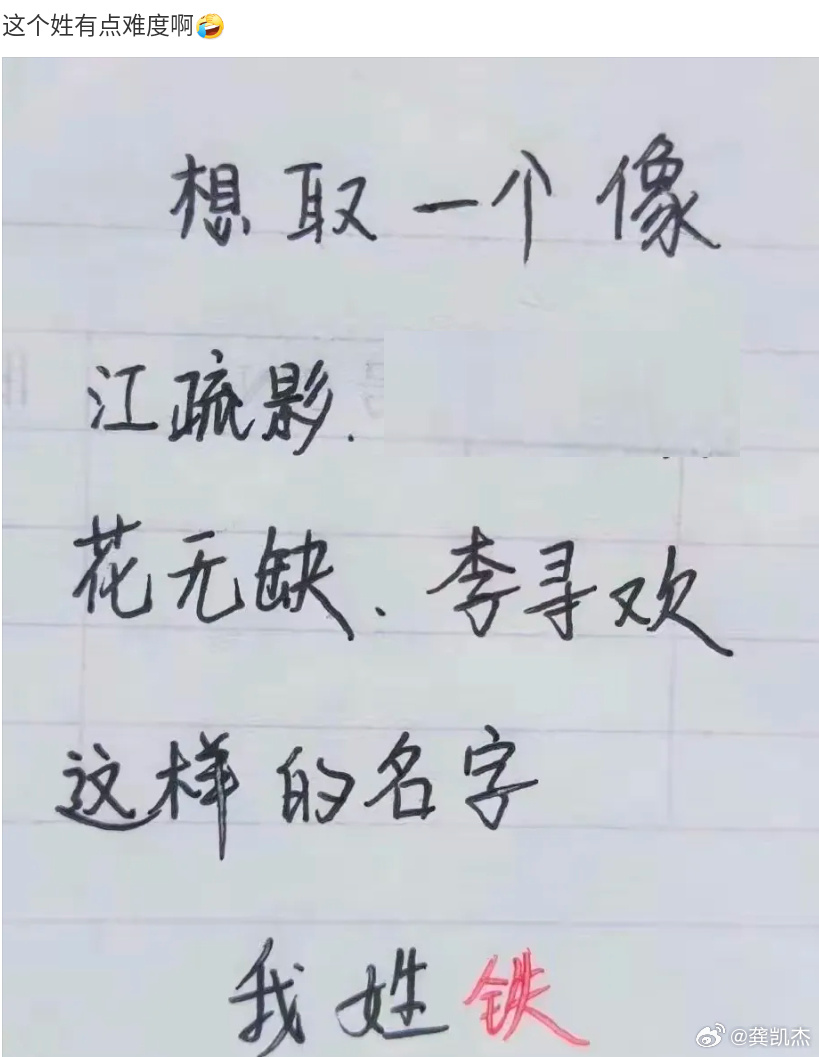 这个姓有点难度啊🤣
想取一个像
江疏影、
花无缺、李寻欢
这样的名字
我姓铁
@龚凯杰